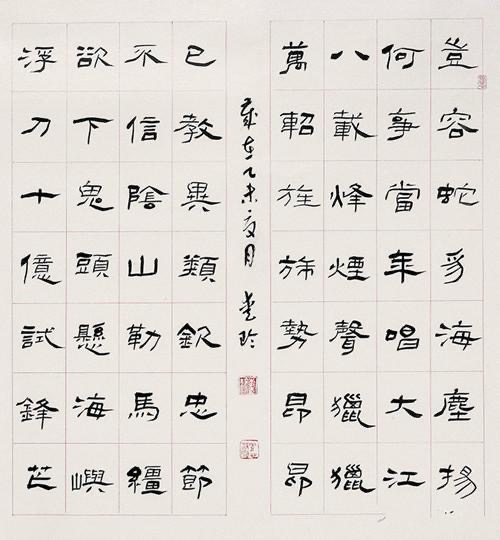 豈容蛇豸海塵揚
何事當年唱大江
八載烽煙聲獵獵
萬軺旌旆勢昂昂
歲在乙未夏月 玲
已教異類欽忠節
不信陰山勒馬繮
欲下鬼頭懸海嶼
浮刀十億試鋒芒